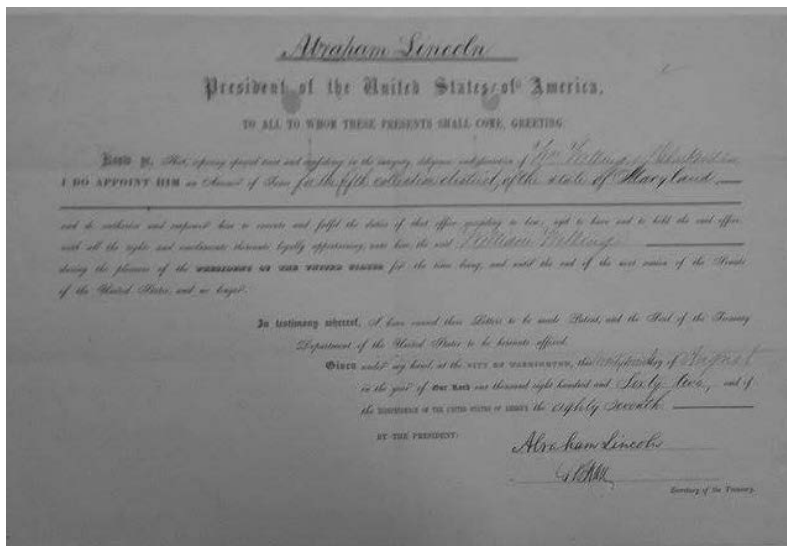 Abraham Lincoln
President of the United States of America,
TO ALL TO WHOM THESE PRESENTS SHALL COME, GREETING:
Know ye, That, reposing special trust and confidence in the integrity, diligence and discretion of Wm. Welling of
I DO APPOINT HIM an Assessor of Taxes for the fifth collection district, of the state of Maryland
and do authorize and empower him to execute and fulfil the duties of that office according to law; and to have and to hold the said office,
with all the rights and emoluments thereunto legally appertaining, unto him, the said William Welling
during the pleasure of the PRESIDENT OF THE UNITED STATES for the time being, and until the end of the next session of the Senate
of the United States, and no longer.
In testimony whereof, I have caused these Letters to be made Patent, and the Seal of the Treasury
Department of the United States to be hereunto affixed.
Given under my hand, at the CITY OF WASHINGTON, this day of August
in the year of Our Lord one thousand eight hundred and Sixty two, and of
the INDEPENDENCE OF THE UNITED STATES OF AMERICA the eighty seventh
BY THE PRESIDENT:
Abraham Lincoln
Secretary of the Treasury.